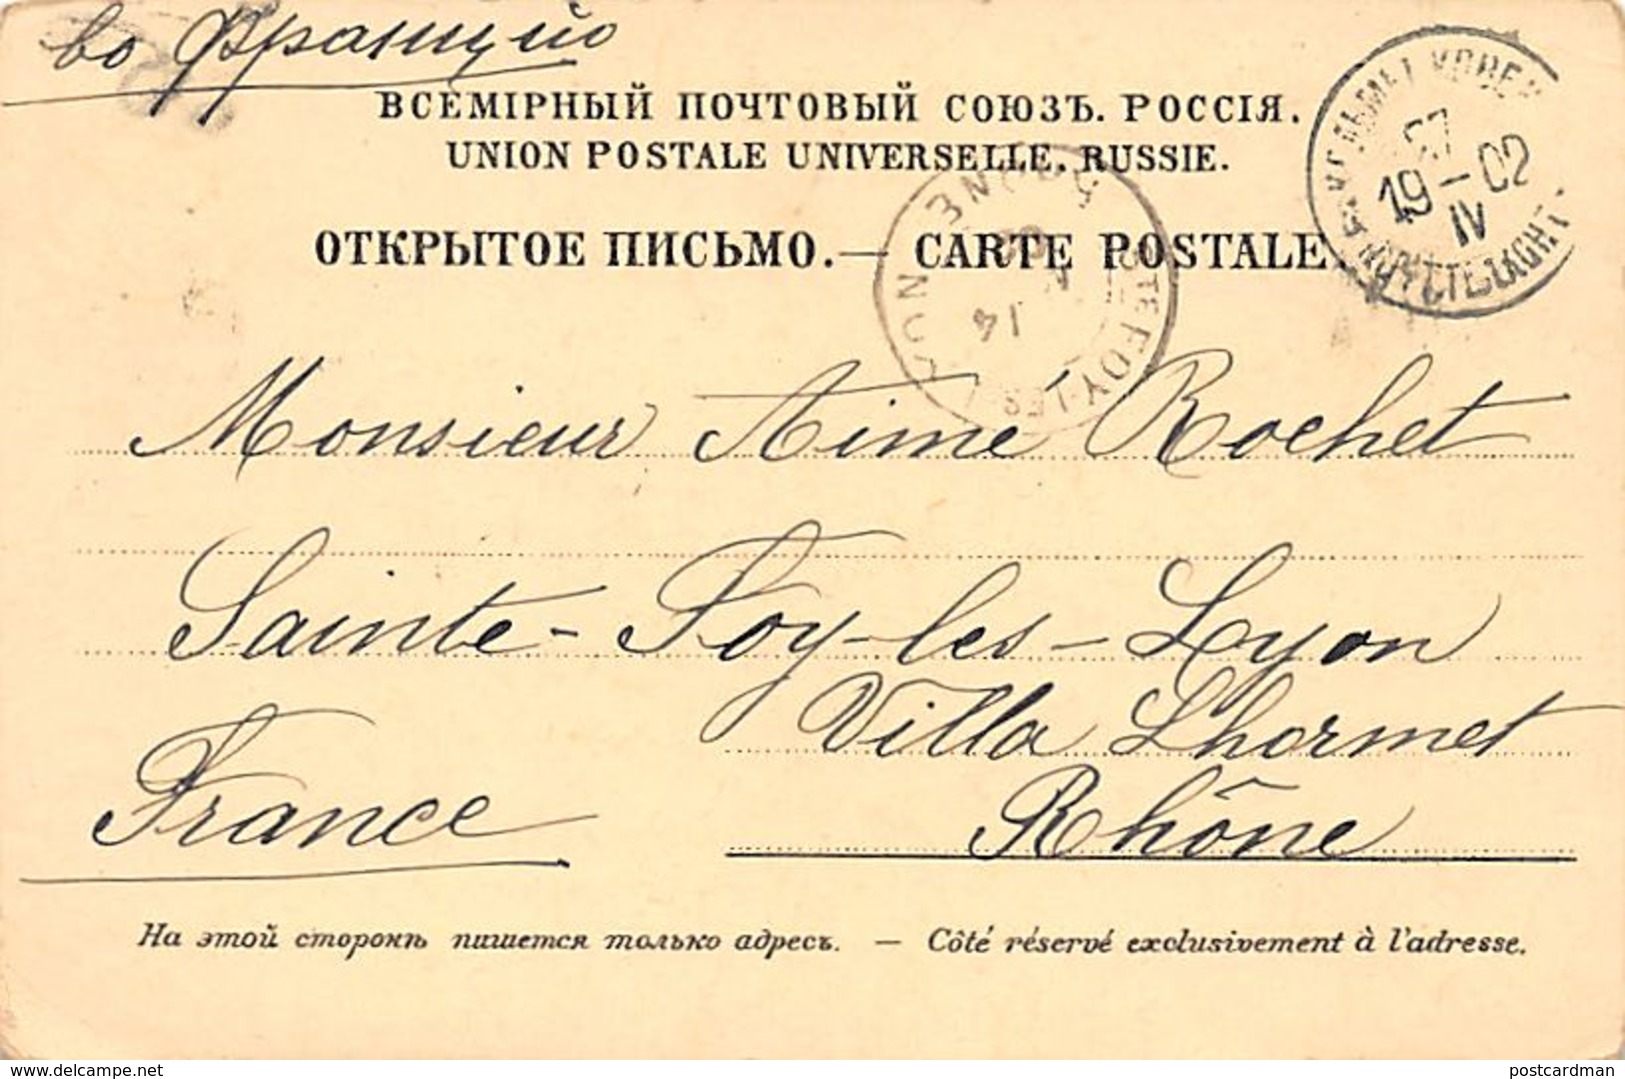 во Францію
ВСЕМІРНЫЙ ПОЧТОВЫЙ СОЮЗЪ. РОССІЯ.
UNION POSTALE UNIVERSELLE. RUSSIE.
ОТКРЫТОЕ ПИСЬМО. — CARTE POSTALE
19-02
IV
STE FOY-LES-LYON
14
Monsieur Aime Rochet
Sainte-Foy-les-Lyon
Villa Lhormet
France
Rhône
На этой сторонѣ пишется только адресъ. — Côté réservé exclusivement à l'adresse.
www.delcampe.net
postcardman